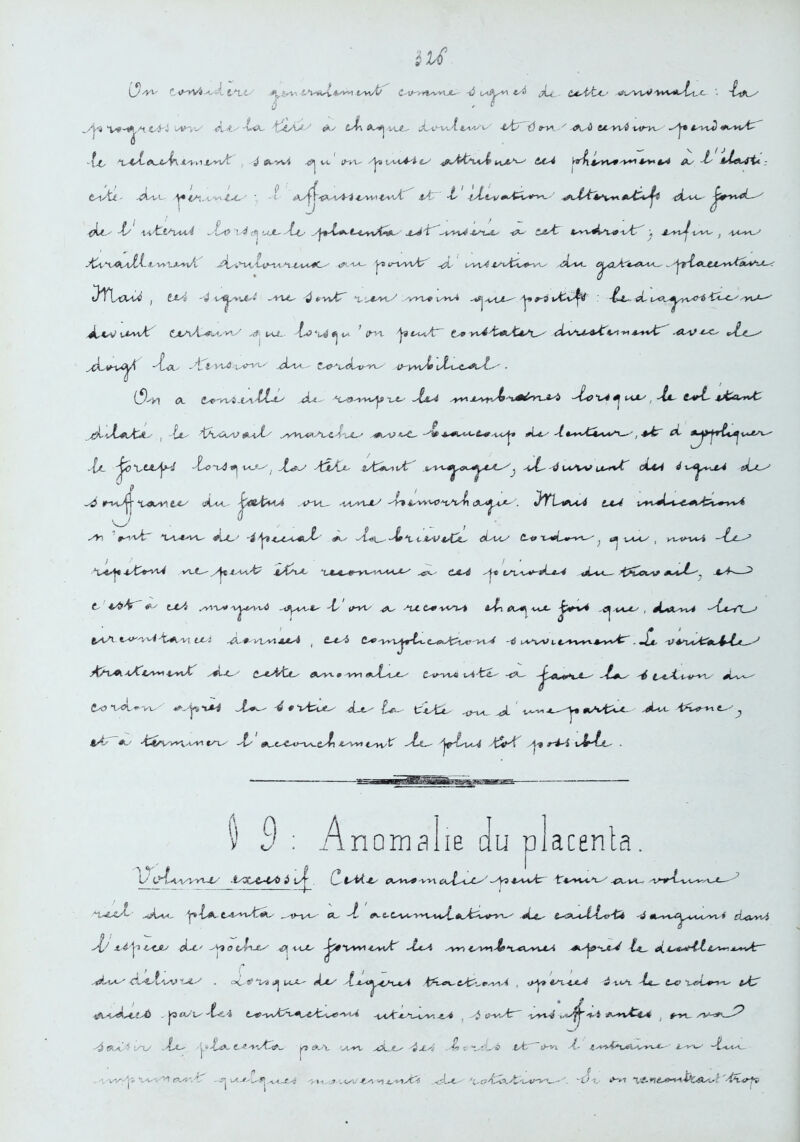 326
On considère généralement comme signes de cette anomalie : la
progression de la tête à chaque douleur et son ascension pendant
le relachement, sans qu'on puisse attribuer ces phénomènes à l'élasti-
cité du périnée ; l'affaissement et l'élévation alternatifs du fond
de l'utérus lorsque le placenta est inséré à cet endroit ; enfin, un
tiraillement douloureux au point d'insertion du gateau placentaire.
Mais, ces signes ne sont rien moins que positifs : le diagnostic ne
devient certain que lorsqu'on peut constater directement avec le
doigt la tension du cordon ombilical.
On a conseillé de rompre les membranes lorsque, le col étant
dilaté, le travail marche avec beaucoup de lenteur, et d'appliquer
le forceps lorsque, la tête étant engagée, il survient des signes de
souffrance du fœtus ou une hémorrhagie. Mais ces indications
n'ont rien de spécial à la brièveté du cordon, qui, nous le
répétons ne peut être reconnue à ces périodes du travail, et
c'est à ces moyens que l'on a recours chaque fois que, dans les
circonstances données, ces complications surviennent. Le véritable
traitement de cette anomalie consiste à faire la section du
cordon après la sortie de la tête ou d'une partie du tronc,
et à terminer l'accouchement le plus tôt possible.
§ 9 : Anomalie du placenta.
Volume excessif. Cette anomalie peut tenir au volume
réel du placenta ou à l'accumulation de caillots sanguins dans
l'espèce de poche que forment les membranes après le décollement
du délivre. Lorsque de légères tractions, opérées sur le cordon et
aidées par les contractions utérines, sont insuffisantes, on va
saisir le placenta par un de ses bords et on l'entraîne en lui
imprimant quelques mouvements de rotation. Si on rencontrait trop